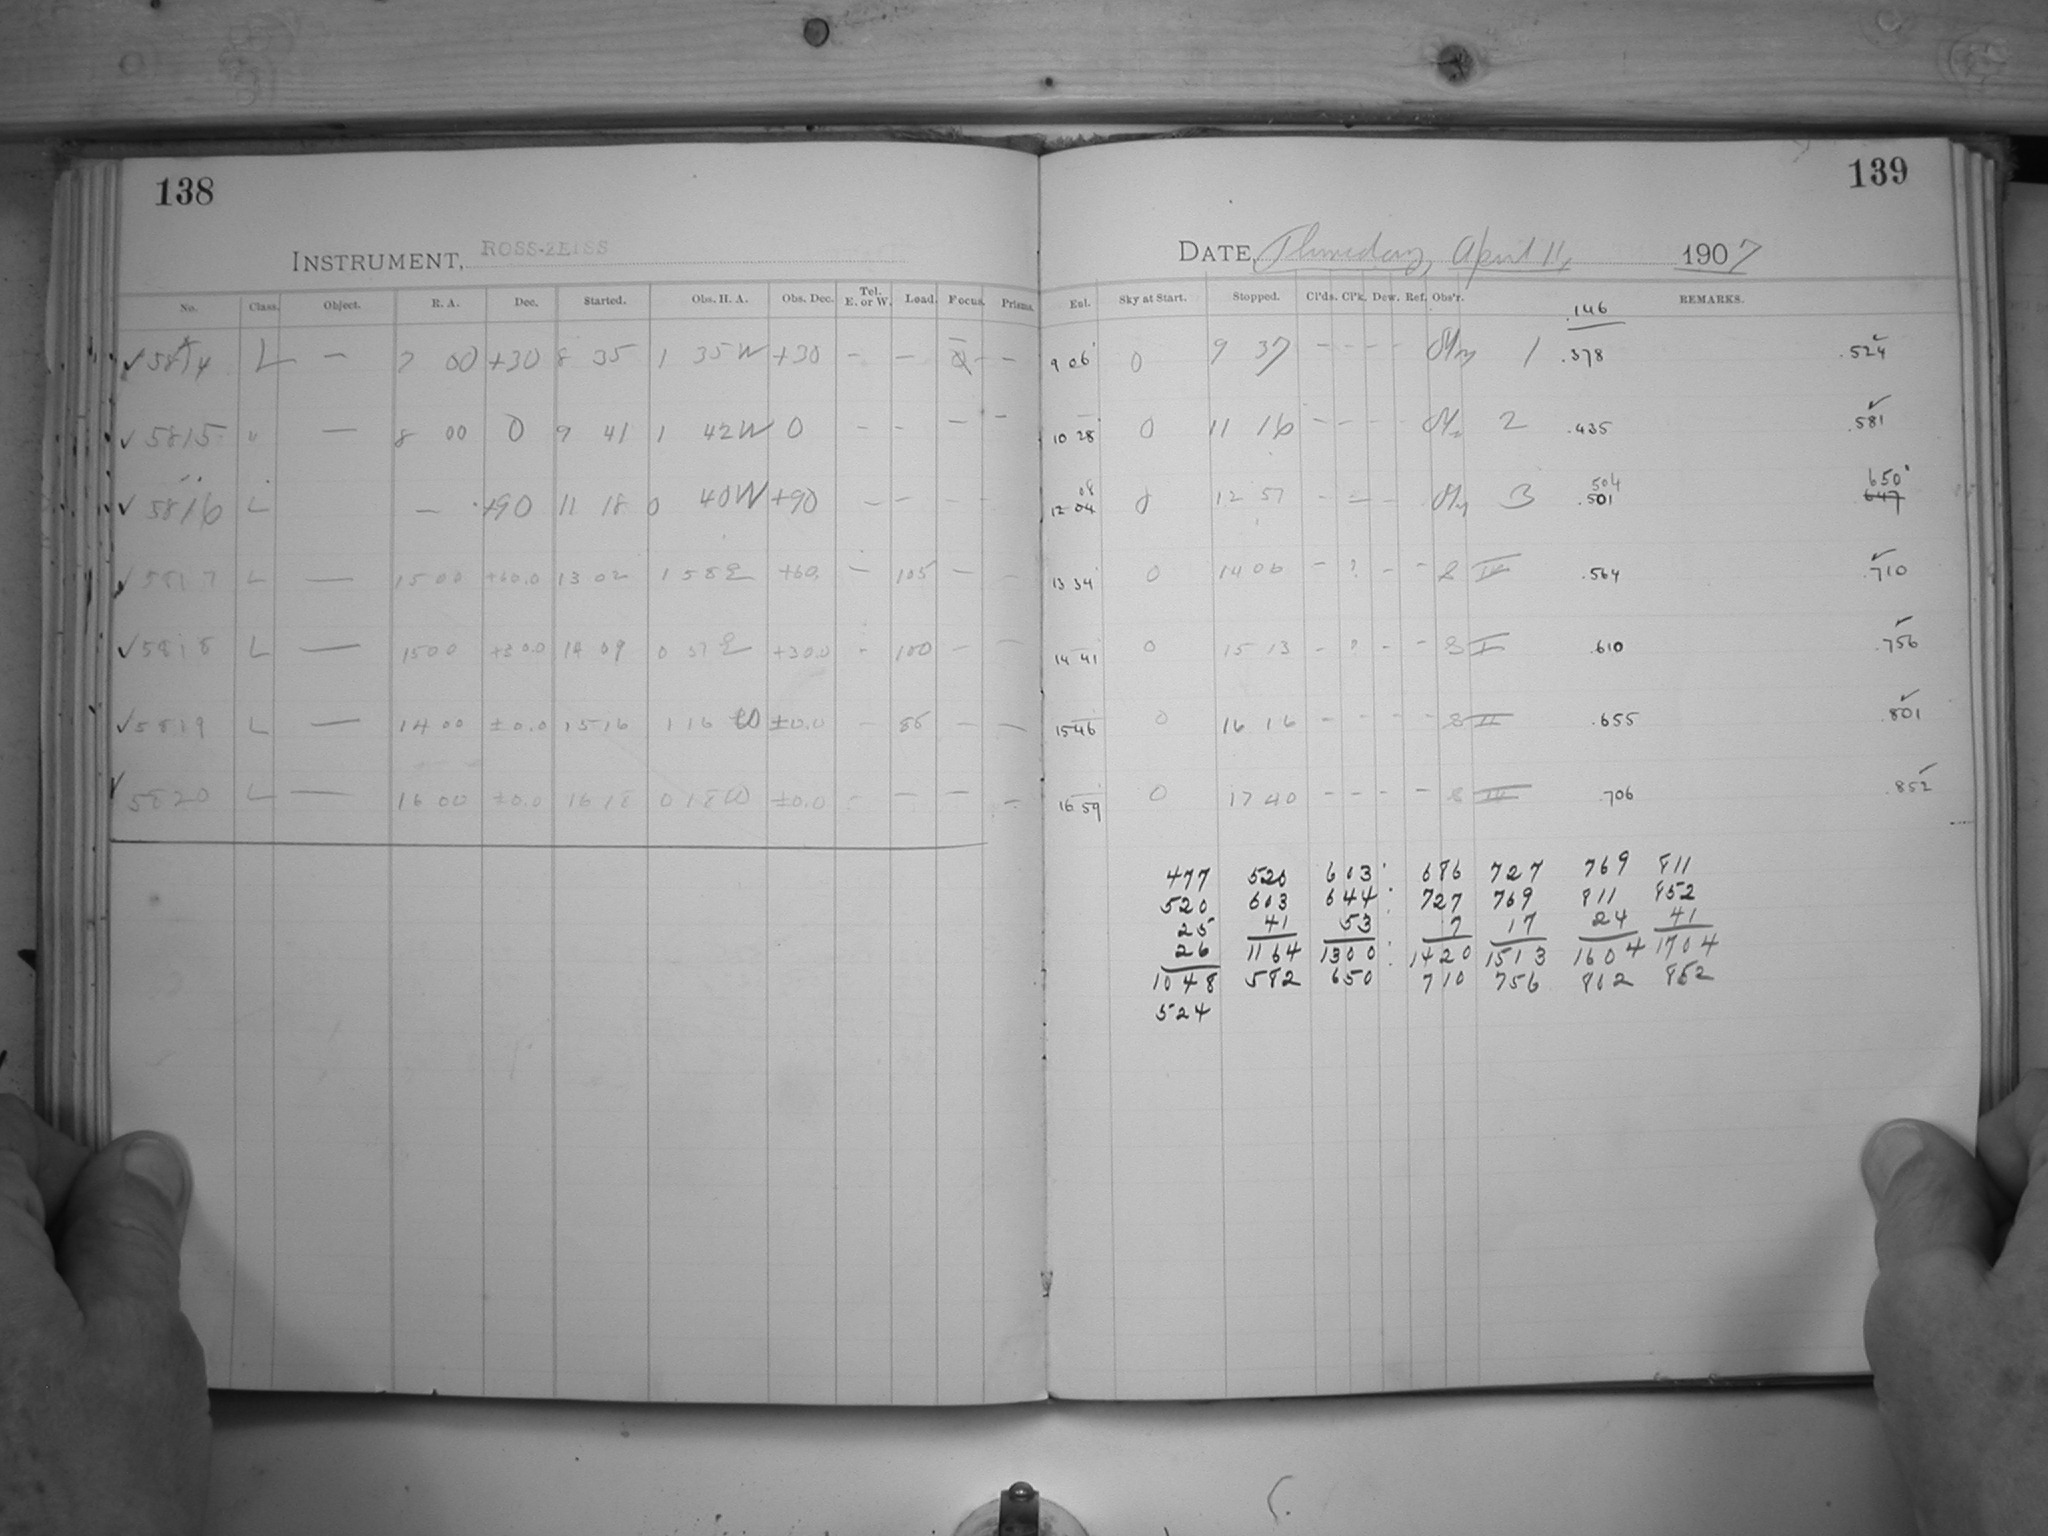 138
INSTRUMENT, ROSS-ZEISS
No. Class. Object. R. A. Dec. Started. Obs. H. A. Obs. Dec. Tel. E. or W. Load. Focus. Prisms.
✓ 5814 L — 7 00 +30 8 35 1 35 W +30 — — — —
✓ 5815 " — 8 00 0 9 41 1 42 W 0 — — — —
✓ 5816 L — +90 11 18 0 40 W +90 — — — —
✓ 5817 L — 15 00 +60.0 13 02 1 58 E +60. — 105 — —
✓ 5818 L — 15 00 +30.0 14 09 0 57 E +30.0 — 100 — —
✓ 5819 L — 14 00 ±0.0 15 16 1 16 W ±0.0 — 86 — —
✓ 5820 L — 16 00 ±0.0 16 18 0 18 W ±0.0 — — — —
139
DATE, Thursday, April 11, 1907
Ent. Sky at Start. Stopped. Cl'ds. Cl'k. Dew. Ref. Obs'r. REMARKS.
.146
9 06 0 9 37 - - - - 1 .378 .524
10 28 0 11 16 - - - - 2 .435 .581
08 504 650
12 04 0 12 57 - - - 3 .501 647
13 34 0 14 06 - ? - - S IV .564 .710
14 41 0 15 13 - ? - - S I .610 .756
15 46 0 16 16 - - - - S II .655 .801
16 59 0 17 40 - - - - S III .706 .852
477 520 603 686 727 769 811
520 603 644 727 769 811 852
25 41 53 7 17 24 41
26 1164 1300 1420 1513 1604 1704
1048 582 650 710 756 802 852
524